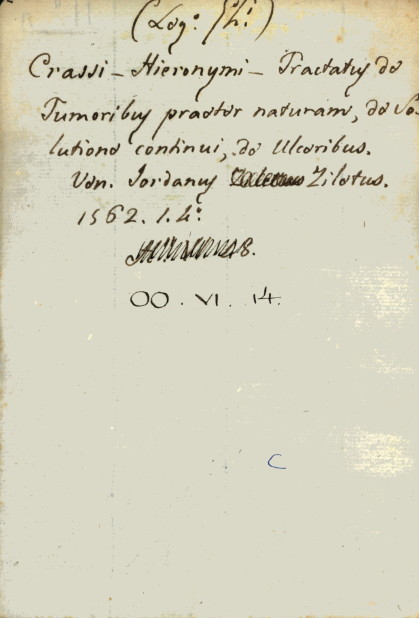 (Log: Ph:)
Crassi - Hieronymi - Tractatus de
Tumoribus praeter naturam, de So-
lutione continui, de Ulceribus.
Ven. Jordanus Zilotus.
1562. 1. 4:
OO. VI. 14.
C